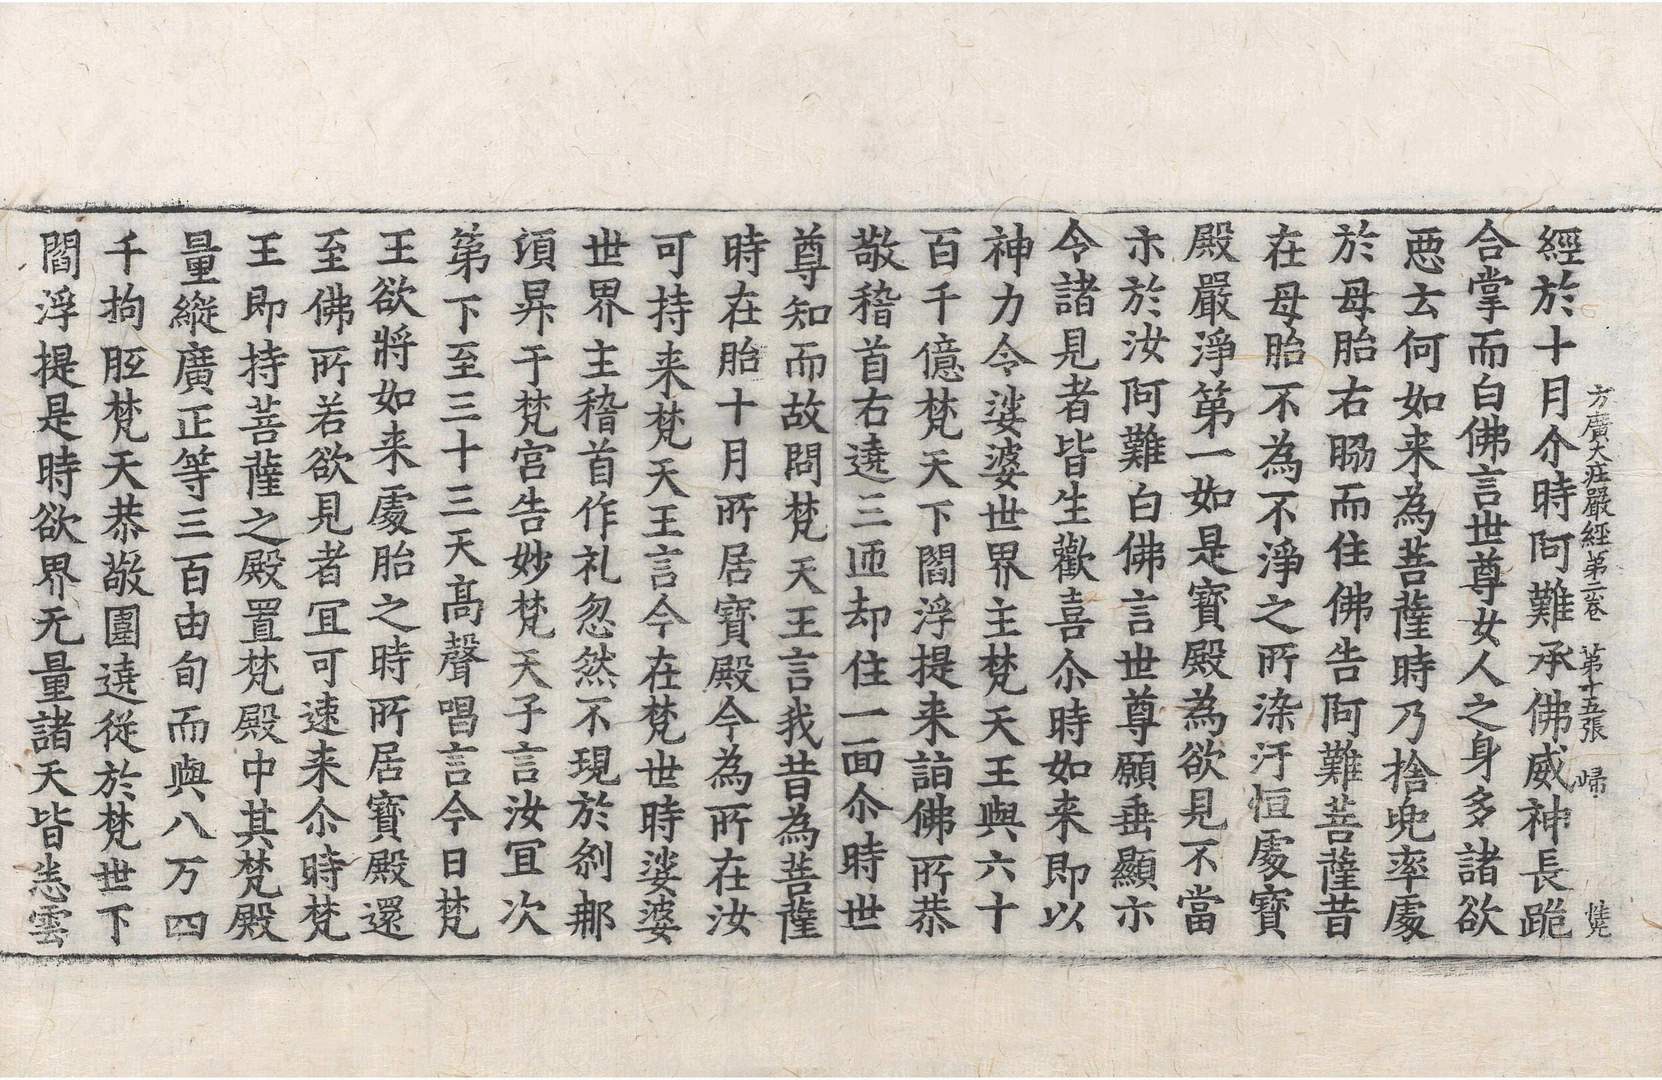 方廣大莊嚴經第二卷 第十五張 歸
經於十月尒時阿難承佛威神長跪
合掌而白佛言世尊女人之身多諸欲
惡云何如来為菩薩時乃捨兜率處
於母胎右脇而住佛告阿難菩薩昔
在母胎不為不淨之所染汙恒處寶
殿嚴淨第一如是寶殿為欲見不當
示於汝阿難白佛言世尊願垂顯示
令諸見者皆生歡喜尒時如来即以
神力令娑婆世界主梵天王與六十
百千億梵天下閻浮提来詣佛所恭
敬稽首右遶三匝却住一面尒時世
尊知而故問梵天王言我昔為菩薩
時在胎十月所居寶殿今為所在汝
可持来梵天王言今在梵世時娑婆
世界主稽首作礼忽然不現於剎那
頃昇于梵宮告妙梵天子言汝冝次
第下至三十三天髙聲唱言今日梵
王欲將如来處胎之時所居寶殿還
至佛所若欲見者冝可速来尒時梵
王即持菩薩之殿置梵殿中其梵殿
量縱廣正等三百由旬而與八万四
千拘胝梵天恭敬圍遶從於梵世下
閻浮提是時欲界无量諸天皆悉雲